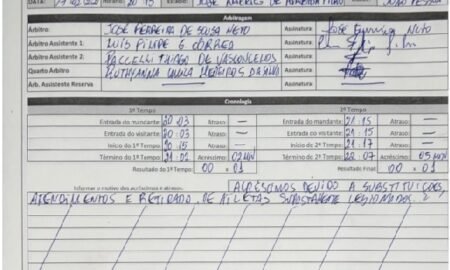 DATA: Horário: 20:15 Estádio: JOSÉ AMÉRICO DE ALMEIDA FILHO JOÃO PESSOA
Arbitragem
Árbitro: JOSÉ FERREIRA DE SOUSA NETO Assinatura
Árbitro Assistente 1: LUÍS FILIPE G CORREA Assinatura
Árbitro Assistente 2: Assinatura
Quarto Árbitro Assinatura
Árb. Assistente Reserva Assinatura
Cronologia
1º Tempo 2º Tempo
Entrada do mandante: 20:03 Atraso: — Entrada do mandante: 21:15 Atraso: —
Entrada do visitante: 20:03 Atraso: — Entrada do visitante: 21:15 Atraso: —
Início do 1º Tempo: 20:15 Atraso: — Início do 2º Tempo: 21:17 Atraso: —
Término do 1º Tempo: 21:02 Acréscimo: 02 MIN Término do 2º Tempo: 22:07 Acréscimo: 05 MIN
Resultado do 1º Tempo: 00 x 01 Resultado Final: 00 x 01
Informar o motivo dos acréscimos e atrasos: ACRÉSCIMOS DEVIDO A SUBSTITUIÇÕES,
ATENDIMENTOS E RETIRADA DE ATLETAS SUPOSTAMENTE LESIONADOS.